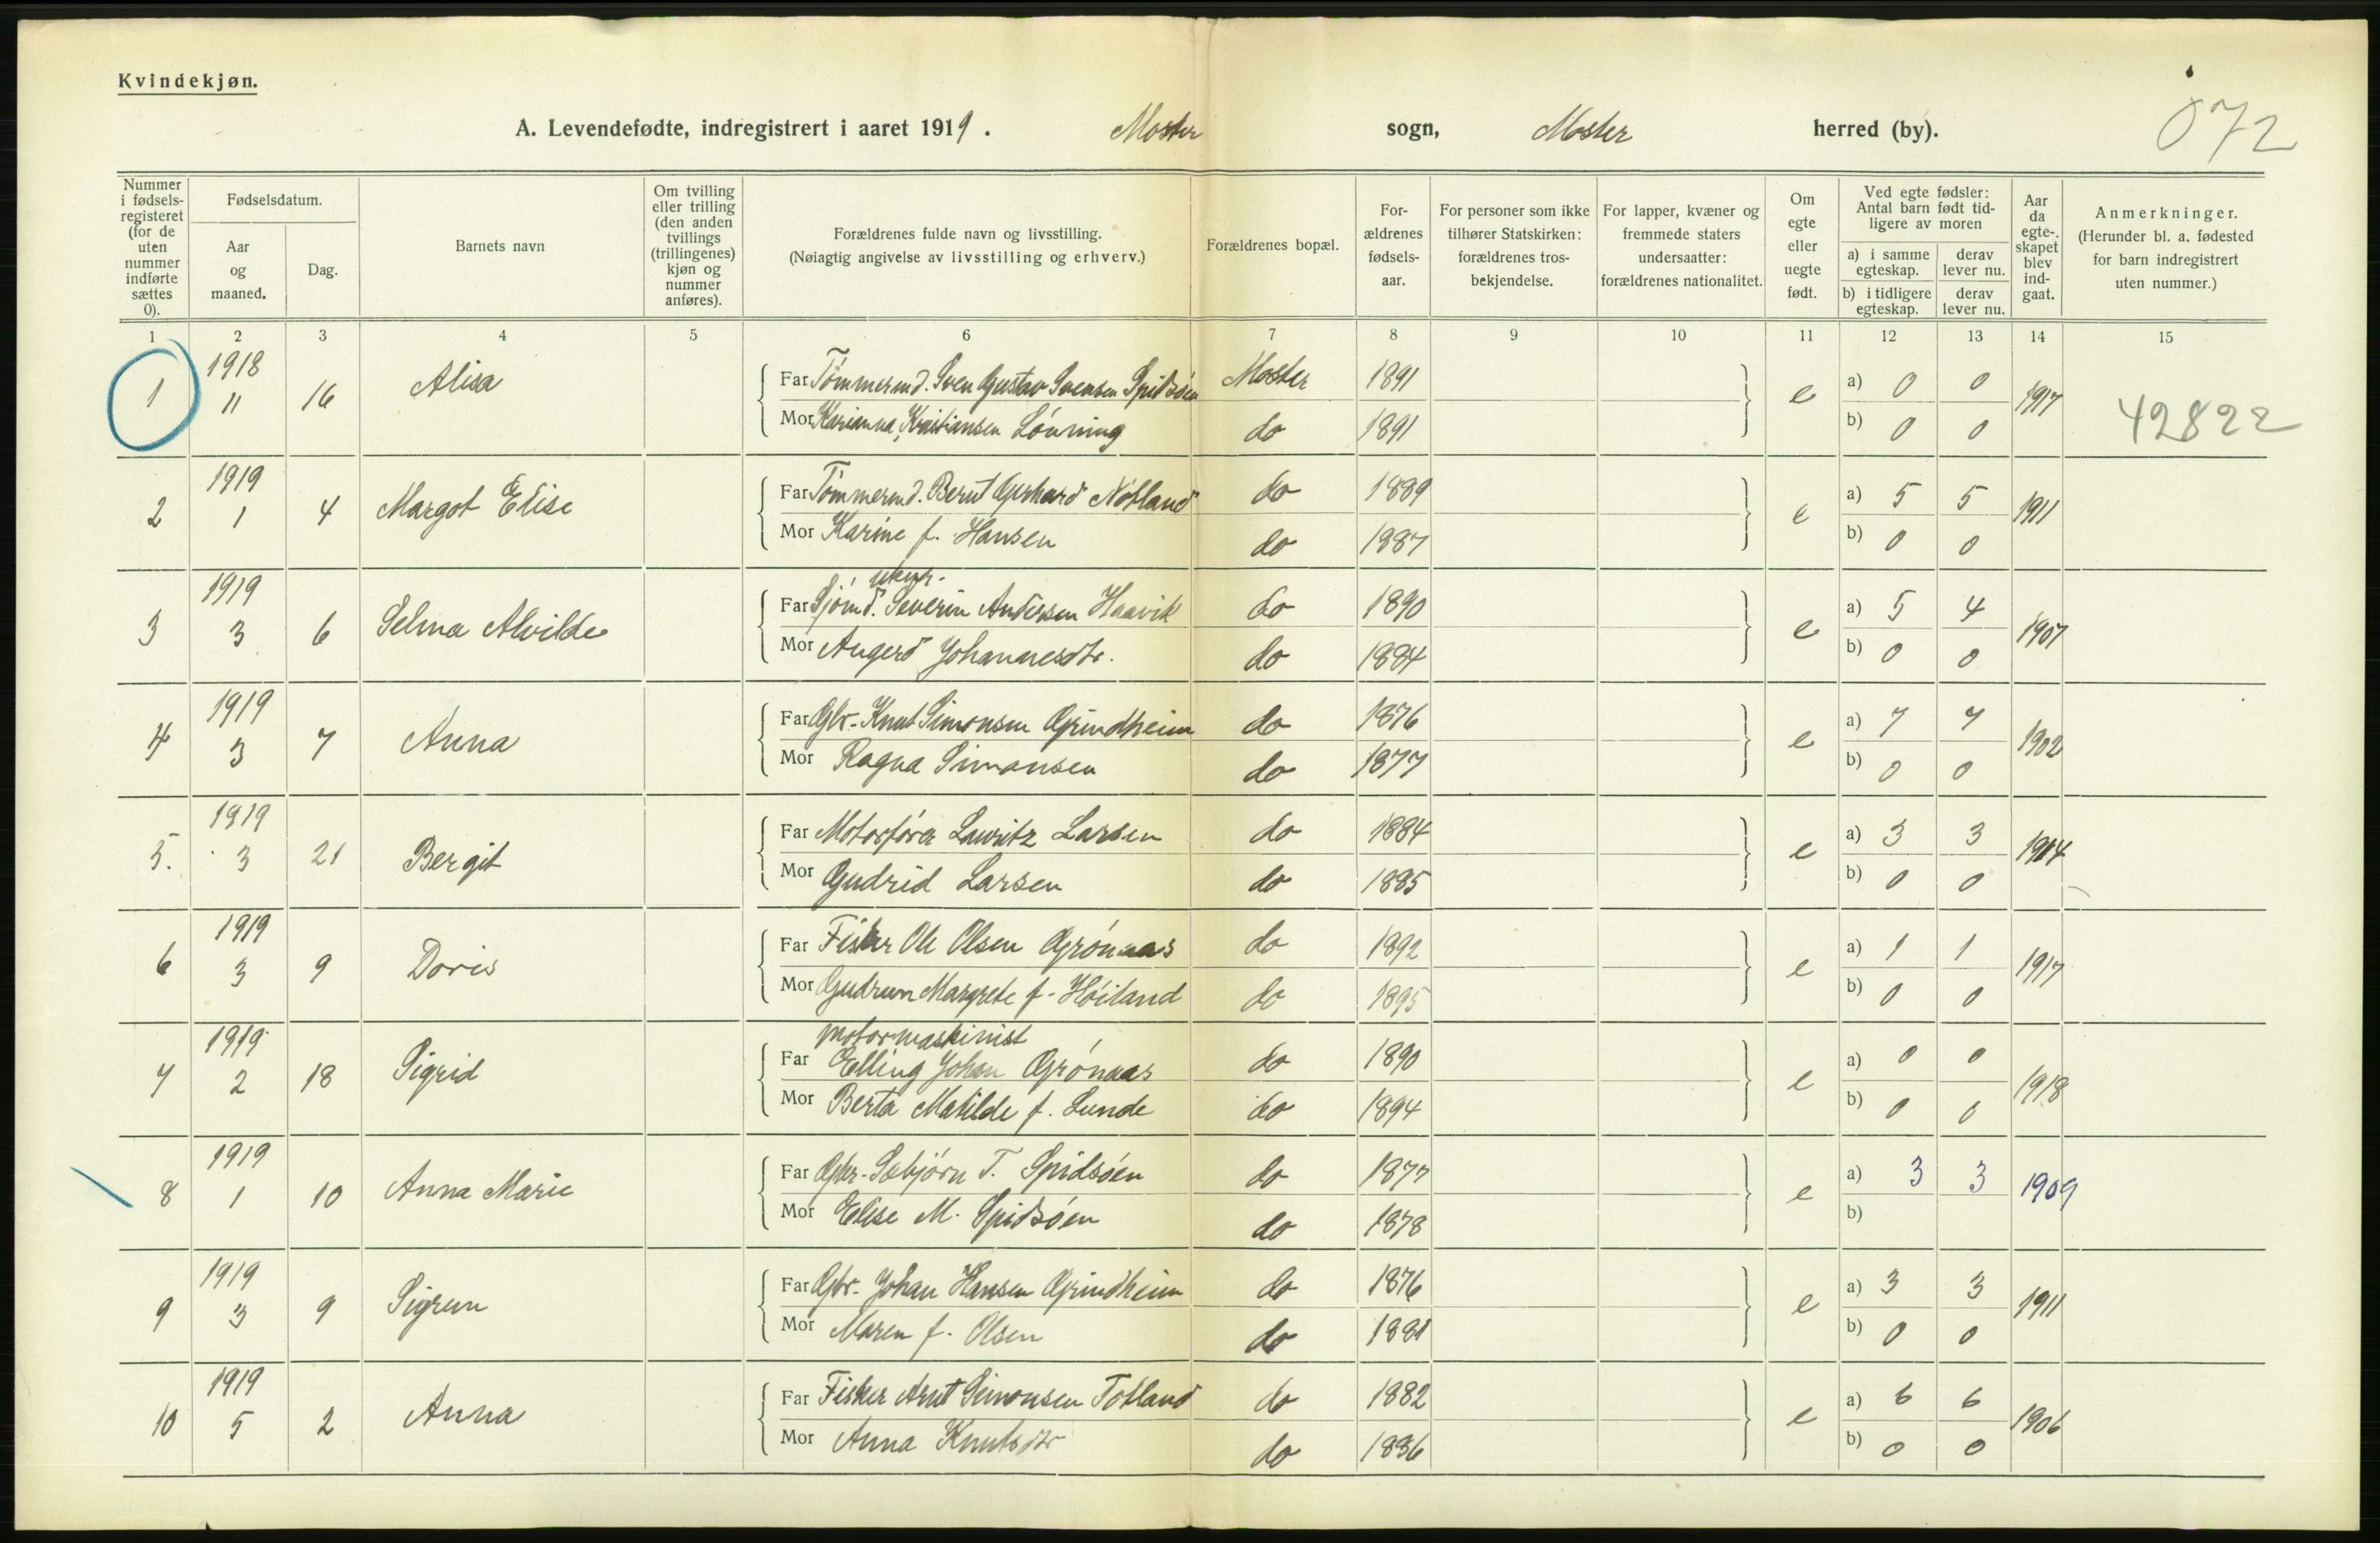 Kvindekjøn.
A. Levendefødte, indregistrert i aaret 1919. Moster sogn, Moster herred (by). 072
Nummer i fødsels-registeret (for de uten nummer indførte sættes 0).
Fødselsdatum.
Aar og maaned.
Dag.
Barnets navn
Om tvilling eller trilling (den anden tvillings (trillingenes) kjøn og nummer anføres).
Forældrenes fulde navn og livsstilling.
(Nøiagtig angivelse av livsstilling og erhverv.)
Forældrenes bopæl.
For-ældrenes fødsels-aar.
For personer som ikke tilhører Statskirken: forældrenes tros-bekjendelse.
For lapper, kvæner og fremmede staters undersaatter: forældrenes nationalitet.
Om egte eller uegte født.
Ved egte fødsler: Antal barn født tid-ligere av moren
a) i samme egteskap.
derav lever nu.
b) i tidligere egteskap.
derav lever nu.
Aar da egte-skapet blev ind-gaat.
Anmerkninger.
(Herunder bl. a. fødested for barn indregistrert uten nummer.)
1 2 3 4 5 6 7 8 9 10 11 12 13 14 15
1 1918 11 16 Alisa
Far Tømmermd. Sven Gustav Svensen Spidsøen Moster 1891 e a) 0 0 1917
Mor Karianna Kristiansen Lønning do 1891 b) 0 0
42822
2 1919 1 4 Margot Elise
Far Tømmermd. Berut Gerhard Notland do 1889 e a) 5 5 1911
Mor Karine f. Hansen do 1887 b) 0 0
3 1919 3 6 Selma Alvilde
Far Sjømd. Severin Andersen Haavik do 1890 e a) 5 4 1907
Mor Angerd Johannesdtr. do 1884 b) 0 0
4 1919 3 7 Anna
Far Gbr. Knut Simonsen Grindheim do 1876 e a) 7 7 1902
Mor Ragna Simonsen do 1877 b) 0 0
5. 1919 3 21 Bergit
Far Motorfører Lauritz Larsen do 1884 e a) 3 3
Mor Gudrid Larsen do 1885 b) 0 0
6 1919 3 9 Doris
Far Fisker Ole Olsen Grønaas do 1892 e a) 1 1 1917
Mor Gudrun Margrete f. Høiland do 1895 b) 0 0
7 1919 2 18 Sigrid
Motormaskinist
Far Elling Johan Grønaas do 1890 e a) 0 0 1918
Mor Berta Matilde f. Lunde do 1894 b) 0 0
8 1919 1 10 Anna Marie
Far Gbr. Sebjørn T. Spidsøen do 1877 e a) 3 3 1909
Mor Elise M. Spidsøen do 1878 b)
9 1919 3 9 Sigrun
Far Gbr. Johan Hansen Grindheim do 1876 e a) 3 3 1911
Mor Maren f. Olsen do 1881 b) 0 0
10 1919 5 2 Anna
Far Fisker Arnt Simonsen Totland do 1882 e a) 6 6 1906
Mor Anna Knutsdtr do 1886 b) 0 0